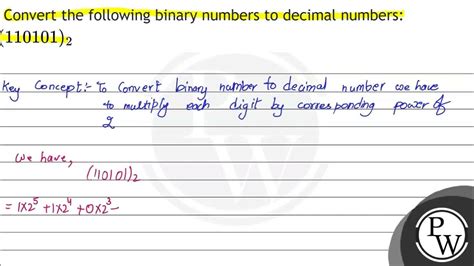 Convert the following binary numbers to decimal numbers:
110101)₂
Key Concept:- To Convert binary number to decimal number we have
to multiply each digit by corresponding power of
2
We have,
(110101)₂
= 1x2⁵ +1x2⁴ +0x2³ -
P
W
P
W